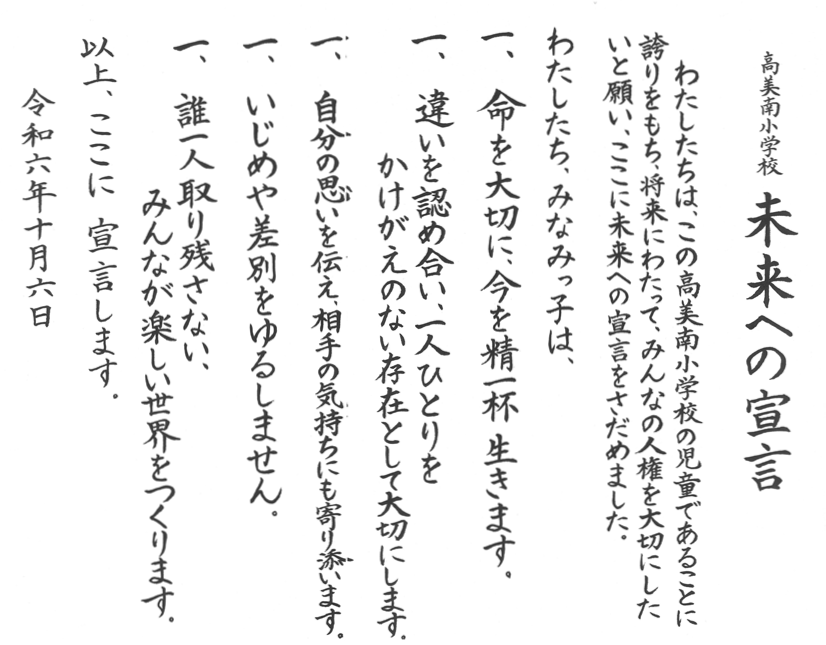 高美南小学校 未来への宣言
わたしたちは、この高美南小学校の児童であることに
誇りをもち、将来にわたって、みんなの人権を大切にした
いと願い、ここに未来への宣言をさだめました。
わたしたち、みなみっ子は、
一、命を大切に、今を精一杯 生きます。
一、違いを認め合い、一人ひとりを
かけがえのない存在として大切にします。
一、自分の思いを伝え、相手の気持ちにも寄り添います。
一、いじめや差別をゆるしません。
一、誰一人取り残さない、
みんなが楽しい世界をつくります。
以上、ここに 宣言します。
令和六年十月六日